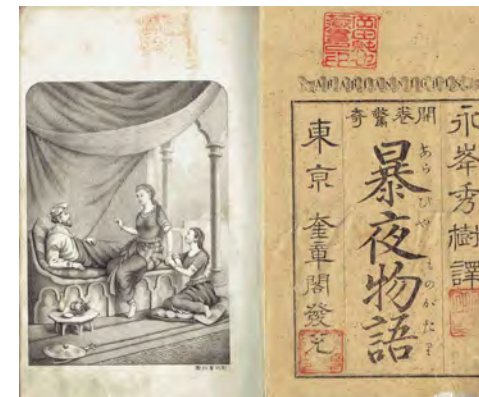 永峯秀樹譯
開卷驚奇
暴夜物語
あらびやものがたり
東京 奎章閣發兌